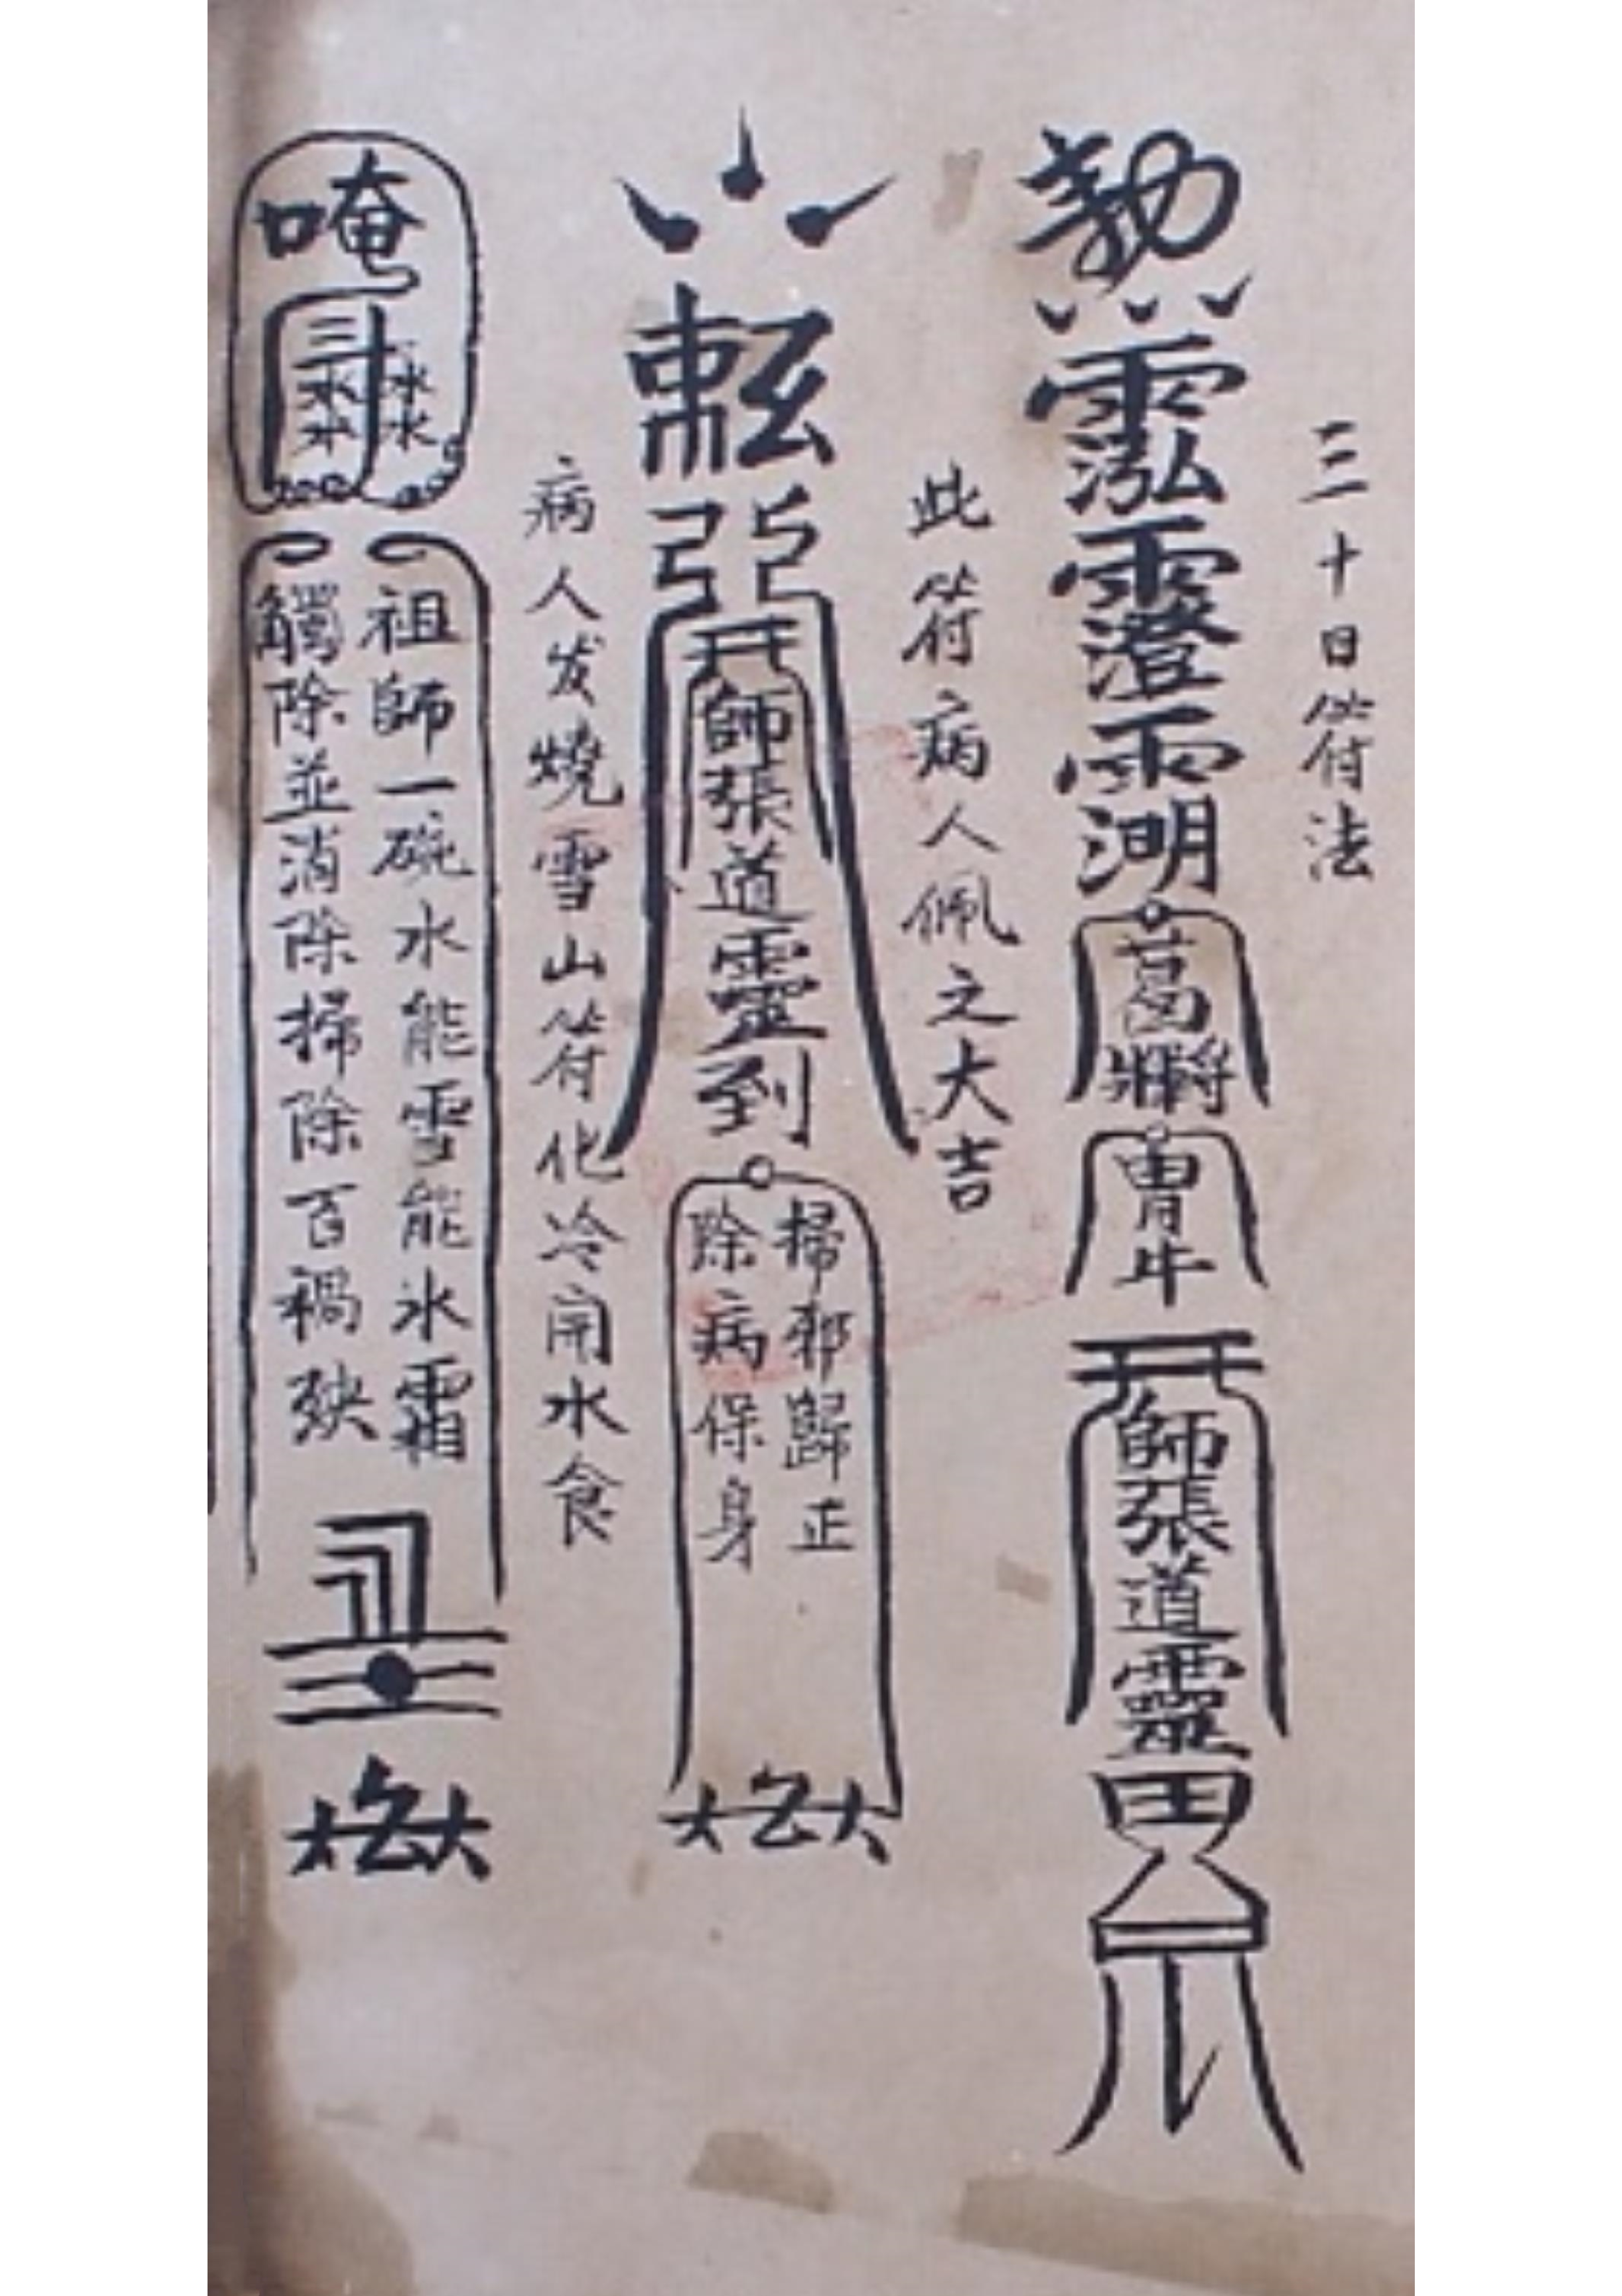 三十日符法
勅
師張道靈
此符病人佩之大吉
師張道靈到
掃邪歸正
除病保身
病人发燒雪山符化冷開水食
唵
祖師一碗水能雪能氷霜
觸除並消除掃除百禍殃